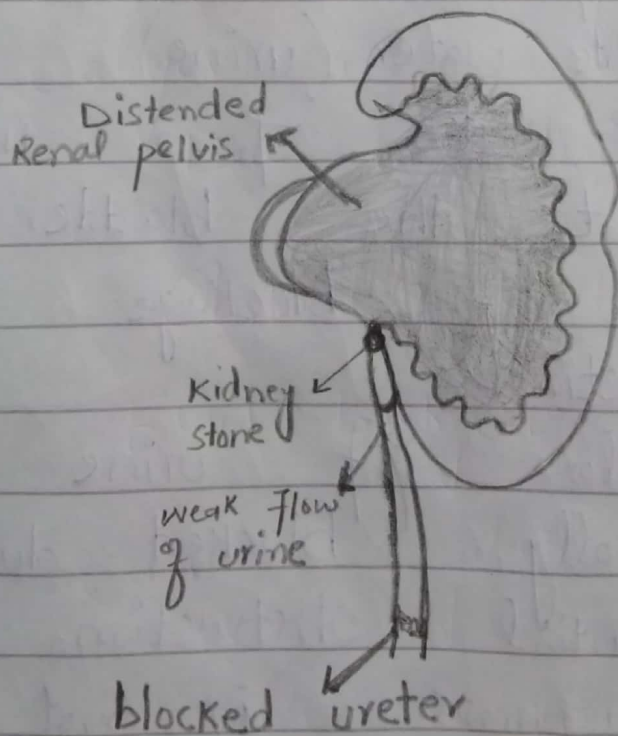 Distended
Renal pelvis
Kidney
stone
weak flow
of urine
blocked ureter